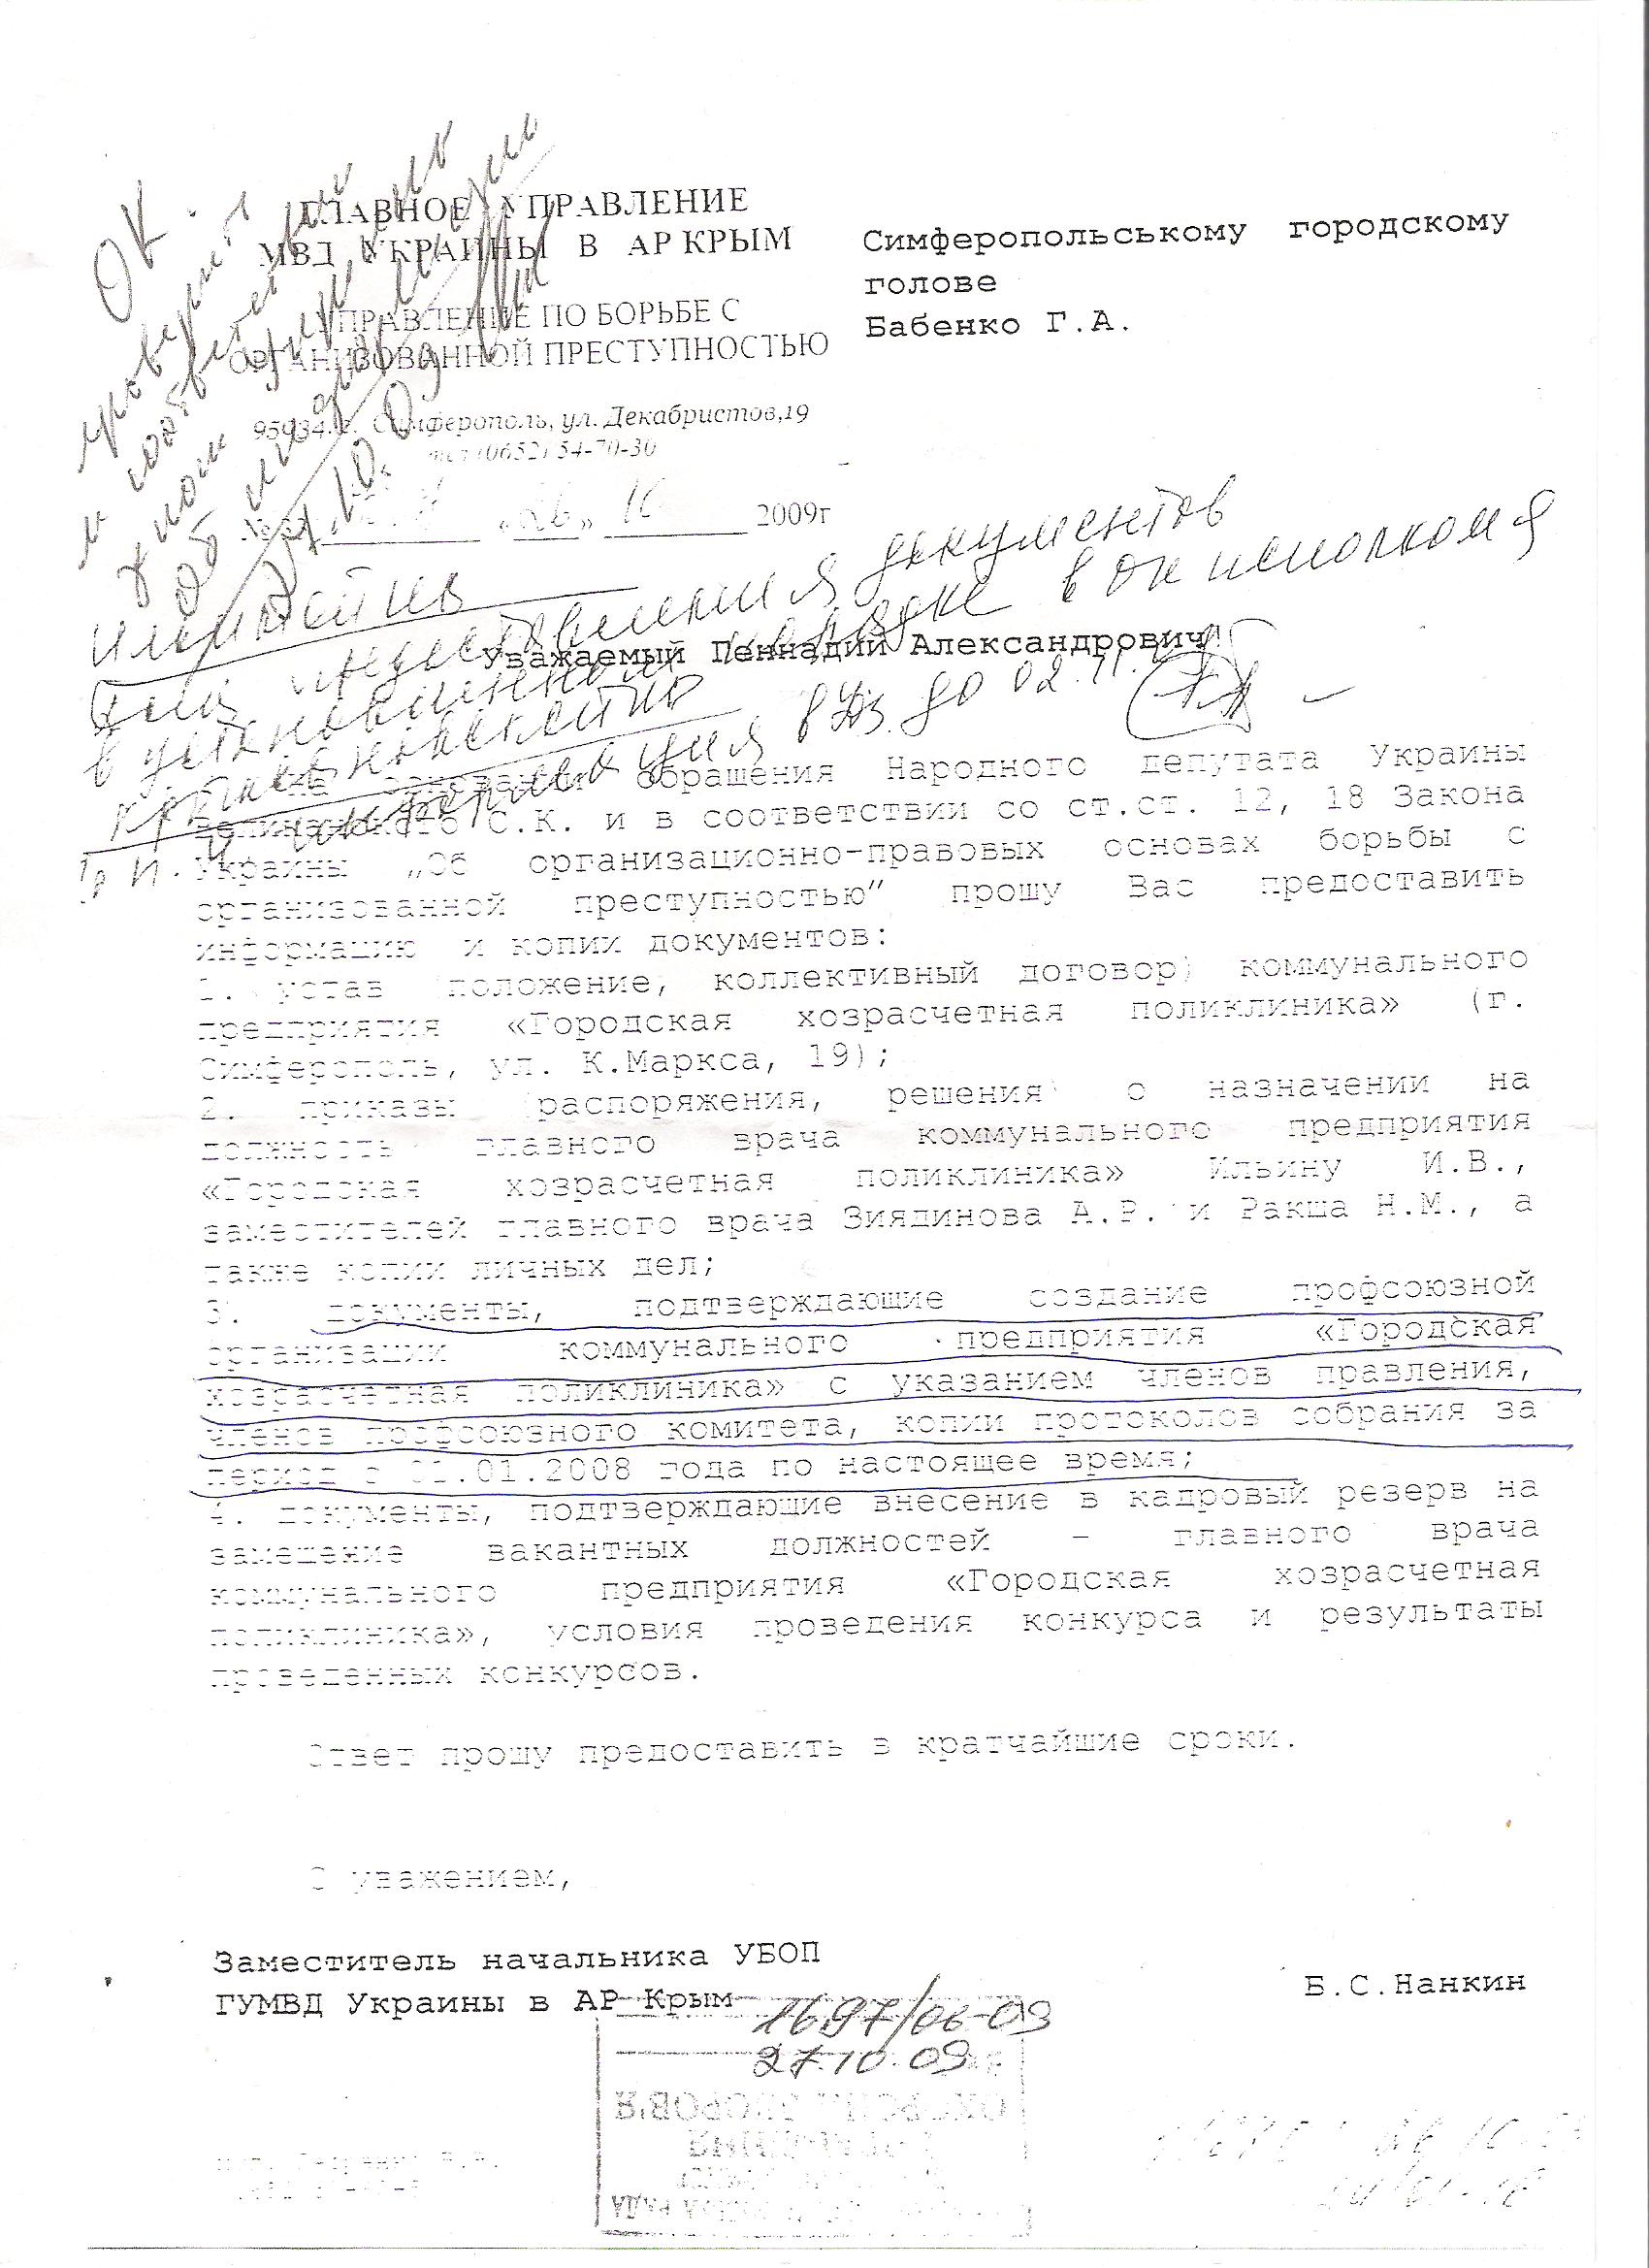 ГЛАВНОЕ УПРАВЛЕНИЕ
МВД УКРАИНЫ В АР КРЫМ
УПРАВЛЕНИЕ ПО БОРЬБЕ С
ОРГАНИЗОВАННОЙ ПРЕСТУПНОСТЬЮ
95034, г. Симферополь, ул. Декабристов,19
тел (0652) 54-70-30
«26» 10 2009г
Симферопольському городскому
голове
Бабенко Г.А.
ОК
документов
в установленном порядке в ОК исполкома
до 02.11.
Уважаемый Геннадий Александрович!
На основании обращения Народного депутата Украины
С.К. и в соответствии со ст.ст. 12, 18 Закона
Украины „Об организационно-правовых основах борьбы с
организованной преступностью” прошу Вас предоставить
информацию и копии документов:
1. устав (положение, коллективный договор) коммунального
предприятия «Городская хозрасчетная поликлиника» (г.
Симферополь, ул. К.Маркса, 19);
2. приказы (распоряжения, решения) о назначении на
должность главного врача коммунального предприятия
«Городская хозрасчетная поликлиника» Ильину И.В.,
заместителей главного врача Зиядинова А.Р. и Ракша Н.М., а
также копии личных дел;
3. документы, подтверждающие создание профсоюзной
организации коммунального предприятия «Городская
хозрасчетная поликлиника» с указанием членов правления,
членов профсоюзного комитета, копии протоколов собрания за
период с 01.01.2008 года по настоящее время;
4. документы, подтверждающие внесение в кадровый резерв на
замещение вакантных должностей – главного врача
коммунального предприятия «Городская хозрасчетная
поликлиника», условия проведения конкурса и результаты
проведенных конкурсов.
Ответ прошу предоставить в кратчайшие сроки.
С уважением,
Заместитель начальника УБОП
ГУМВД Украины в АР Крым
Б.С.Нанкин
1697/06-09
27.10.09